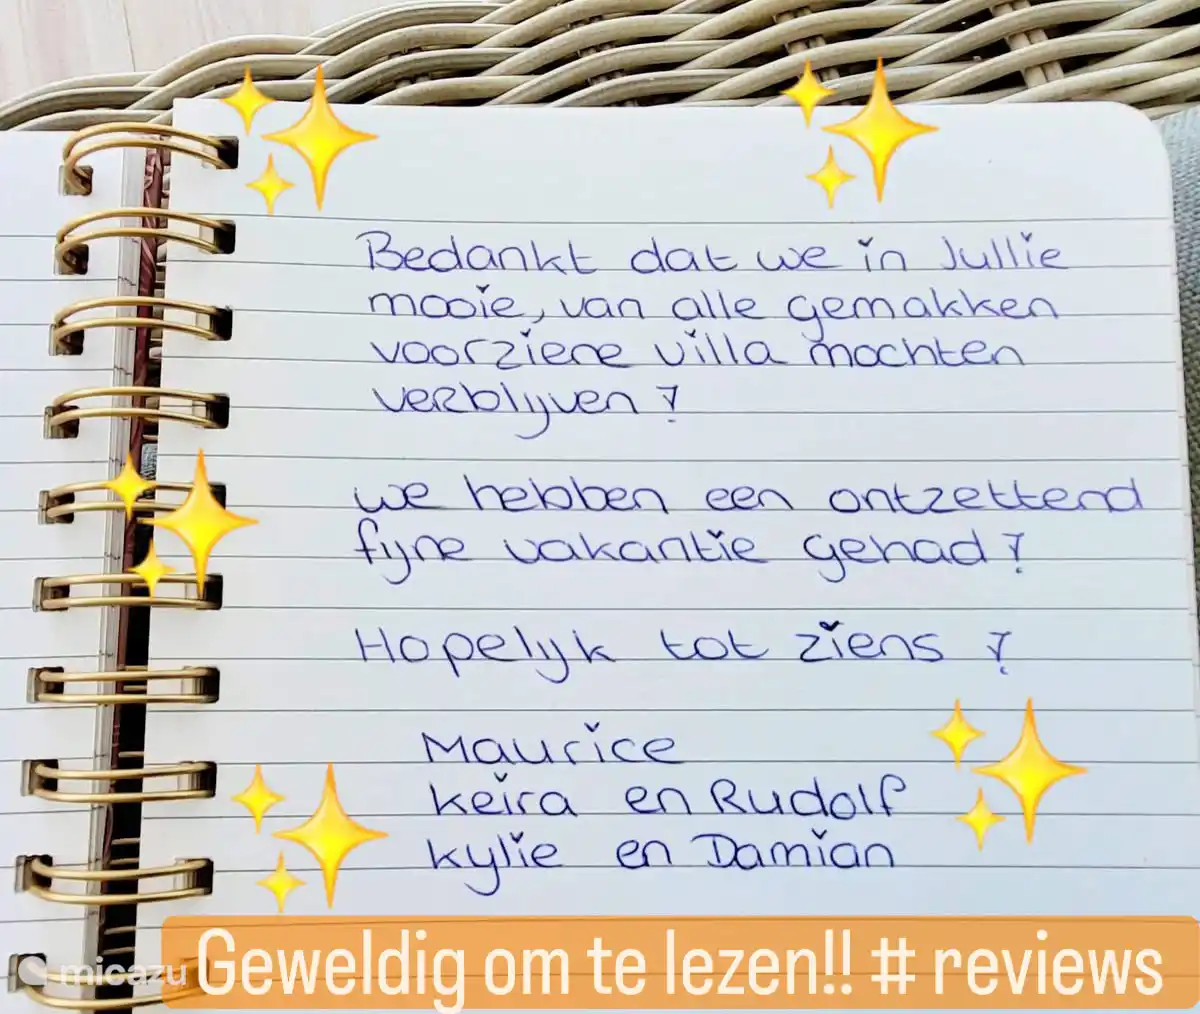 Bedankt dat we in Jullie
mooie, van alle gemakken
voorziene villa mochten
verblijven!
we hebben een ontzettend
fijne vakantie gehad!
Hopelijk tot ziens!
Maurice
Keira en Rudolf
Kylie en Damian
micazu
Geweldig om te lezen!! # reviews